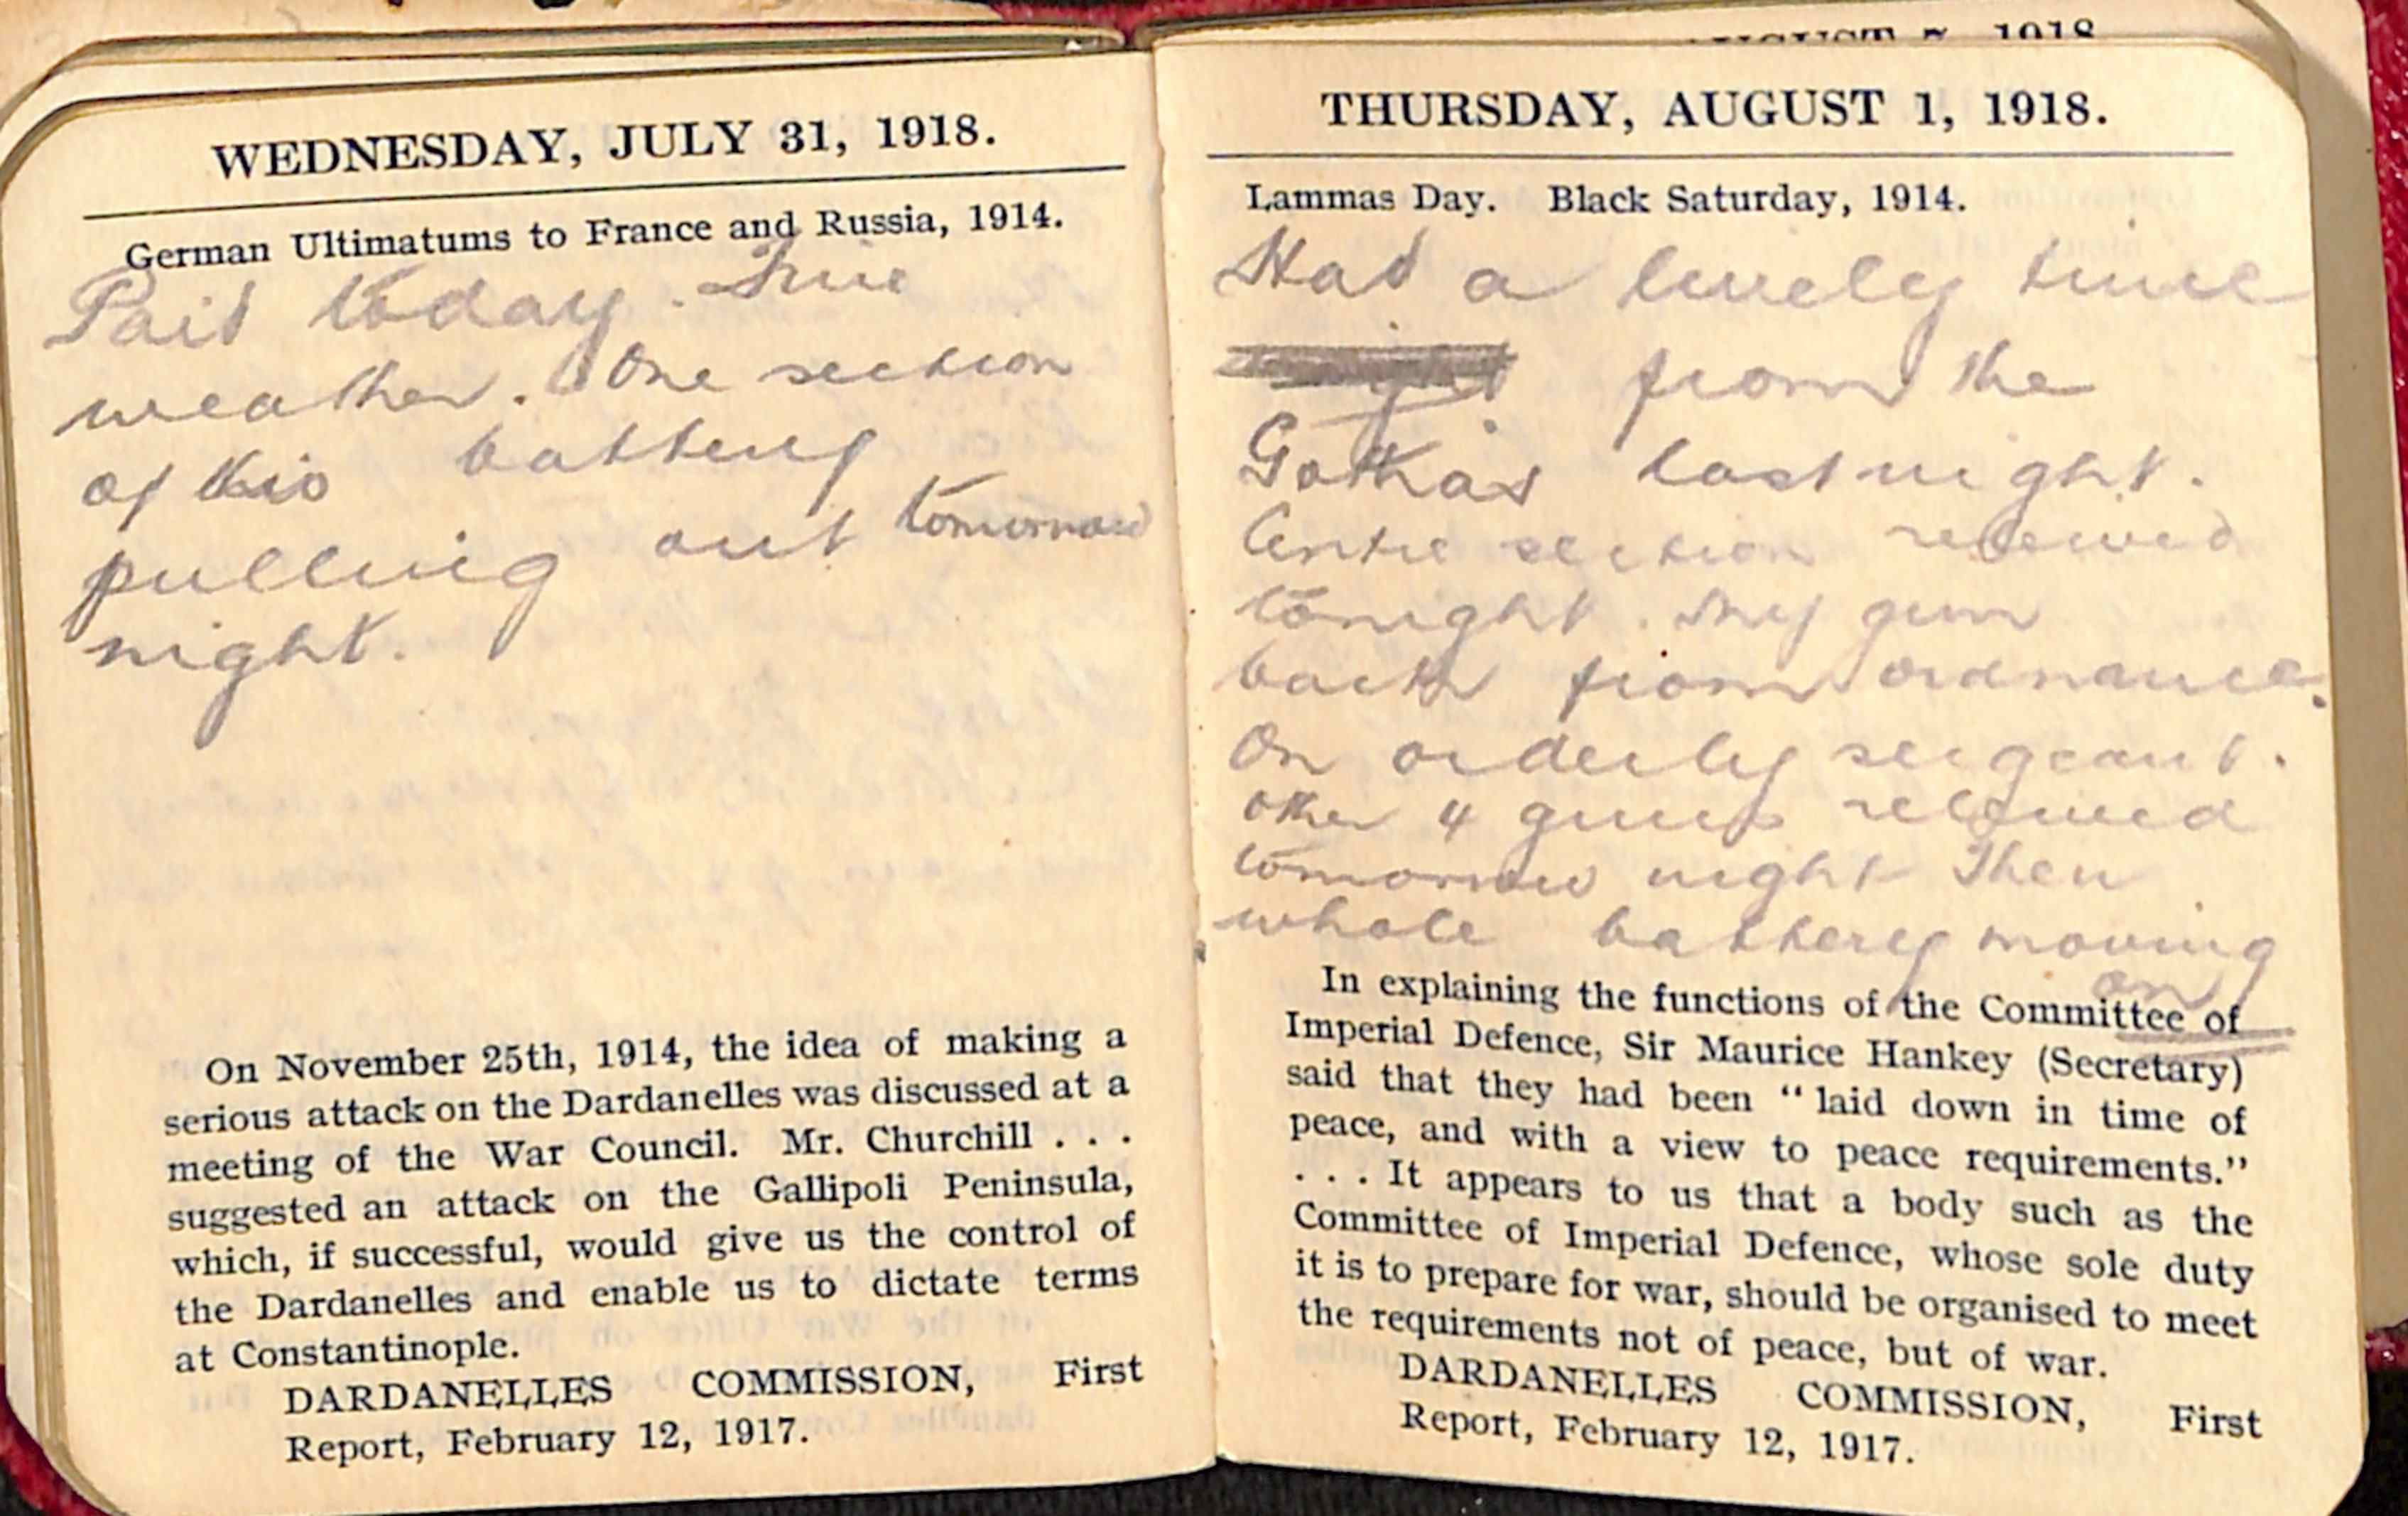 WEDNESDAY, JULY 31, 1918.
German Ultimatums to France and Russia, 1914.
Paid today. Fine
weather. One section
of this battery
pulling out tomorrow
night.
On November 25th, 1914, the idea of making a
serious attack on the Dardanelles was discussed at a
meeting of the War Council. Mr. Churchill . . .
suggested an attack on the Gallipoli Peninsula,
which, if successful, would give us the control of
the Dardanelles and enable us to dictate terms
at Constantinople.
DARDANELLES COMMISSION, First
Report, February 12, 1917.
AUGUST 7, 1918
THURSDAY, AUGUST 1, 1918.
Lammas Day. Black Saturday, 1914.
Had a lively time
from the
Gothas last night.
Centre section relieved
tonight. My gun
back from ordnance.
On orderly sergeant.
Other 4 guns relieved
tomorrow night then
whole battery moving
on
In explaining the functions of the Committee of
Imperial Defence, Sir Maurice Hankey (Secretary)
said that they had been “ laid down in time of
peace, and with a view to peace requirements.”
. . . It appears to us that a body such as the
Committee of Imperial Defence, whose sole duty
it is to prepare for war, should be organised to meet
the requirements not of peace, but of war.
DARDANELLES COMMISSION, First
Report, February 12, 1917.